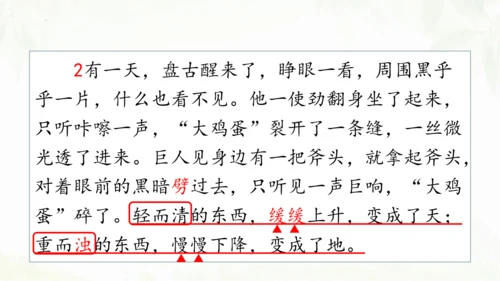 2有一天，盘古醒来了，睁眼一看，周围黑乎
乎一片，什么也看不见。他一使劲翻身坐了起来，
只听咔嚓一声，“大鸡蛋”裂开了一条缝，一丝微
光透了进来。巨人见身边有一把斧头，就拿起斧头，
对着眼前的黑暗劈过去，只听见一声巨响，“大鸡
蛋”碎了。轻而清的东西，缓缓上升，变成了天；
重而浊的东西，慢慢下降，变成了地。